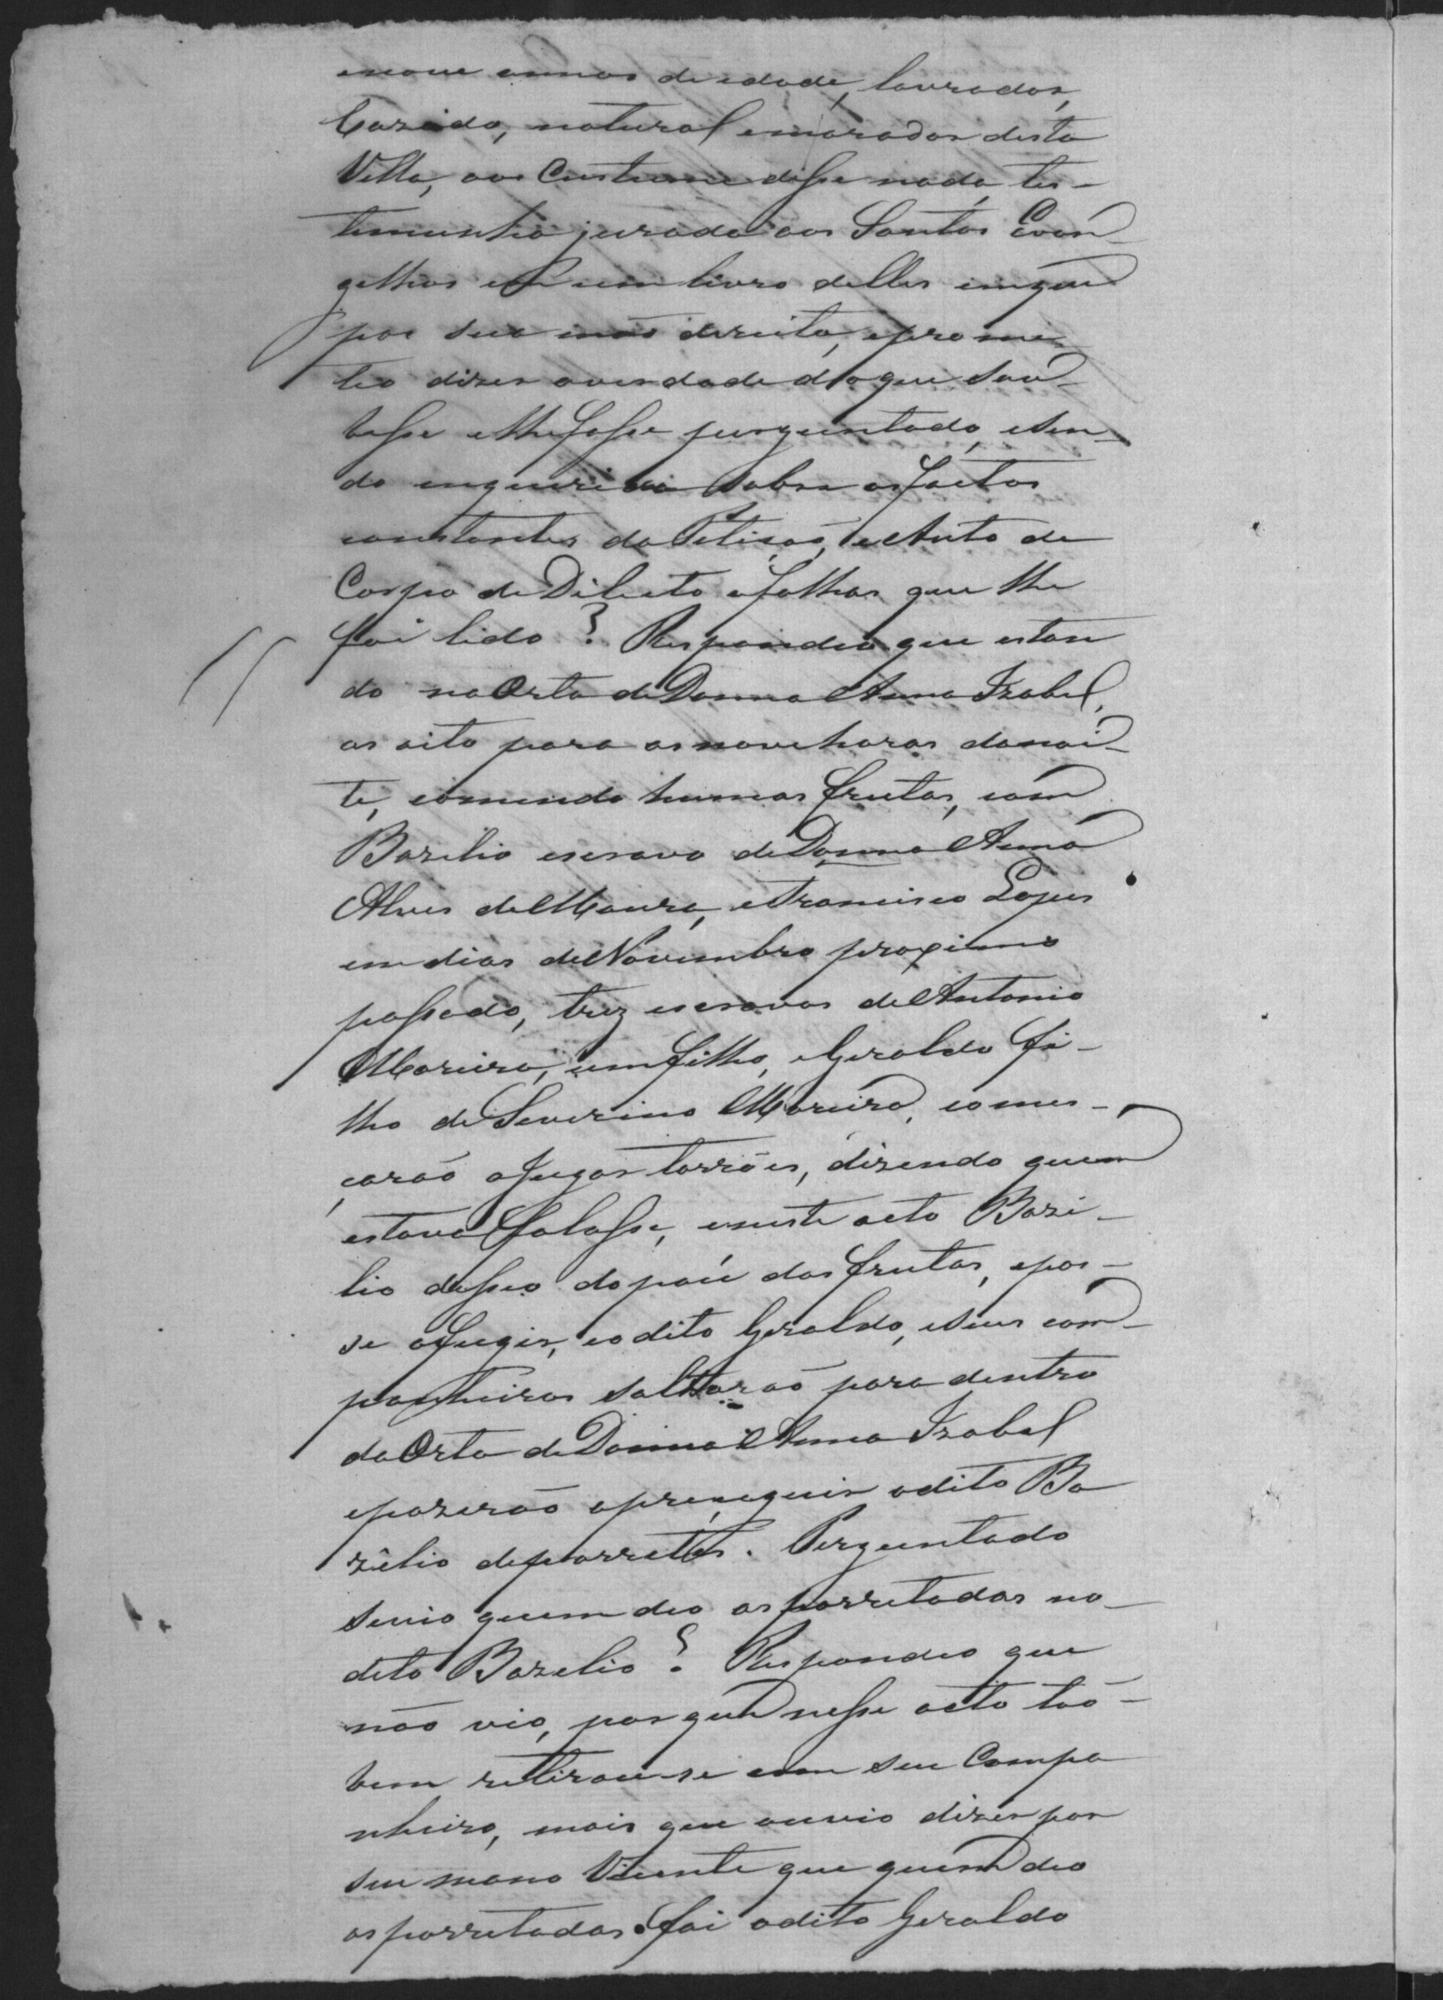 enove annos de edade, lavrador,
Cazado, natural emorador desta
Villa, aos Custume disse nada, tes-
timunha jurada aos Santos Evan-
gelhos em um livro delles emque
pos sua mão direita, eprome-
teo dizer averdade doque sou-
besse elhefosse perguntado, esen-
do enquerido sobre osfactos
constantes da Petição, eAuto de
Corpo de Dilicto afolhas que lhe
foi lido? Respondeo que estan
do naOrta deDonna Anna Izabel,
as oito para asnove horas danoi-
te, comendo humas frutas, com
Bazilio escravo deDonna Anna
Alves deMoura, eFrancisco Lopes
em dias deNovembro proximo
passado, trez escravos deAntonio
Moreira, umfilho, eGeraldo fi-
lho deSeverino Moreira, comes-
sarão ajugar torrões, dizendo quem
estava falasse, eneste acto Bazi-
lio desseo dopau das frutas, epos-
se afugir, eodito Geraldo, eseus com-
panheiros saltarão para dentro
daOrta deDonna Anna Izabel
epozerão aperseguir odito Ba
zilio deporretes. Perguntado
sevio quem deo asporretadas no
dito Bazelio? Respondeo que
não vio, porque nesse acto tão-
bem retirou-se com seu Compa
nheiro, mais que ouvio dizer por
seu mano Vicente que quem deo
asporretadas foi odito Geraldo